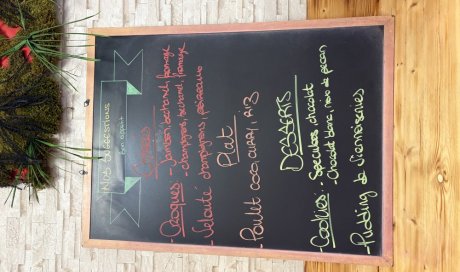 Nos suggestions
Bon appétit
Entrées
- Croques : - Jambon, béchamel, fromage
- champignon, béchamel, fromage
- Velouté champignons, poireaux
Plat
- Poulet coco, curry, RIZ
DESSERTS
- Cookies : - Speculoos chocolat
- Chocolat blanc, noix de pecan
- Pudding de viennoiseries